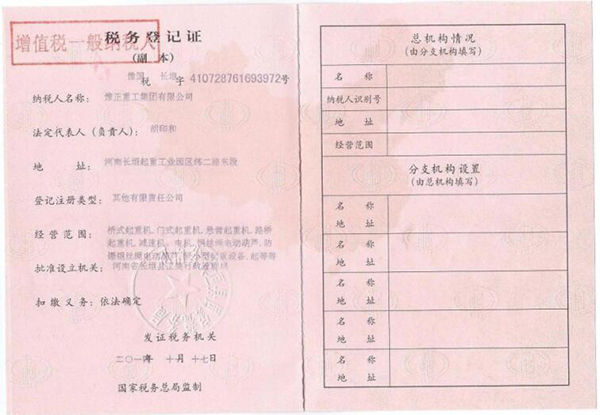 增值税一般纳税人
税务登记证
(副 本)
豫国 长垣
税 字 410728761693972号
纳税人名称： 豫正重工集团有限公司
法定代表人（负责人）： 胡印和
地 址： 河南长垣起重工业园区纬二路东段
登记注册类型： 其他有限责任公司
经 营 范 围： 桥式起重机、门式起重机、悬臂起重机、路桥
起重机、减速机、电机、钢丝绳电动葫芦、防
爆钢丝绳电动葫芦、
批准设立机关： 河南省长垣县工商行政管理局
扣 缴 义 务： 依法确定
发 证 税 务 机 关
二〇一〇年 十月 十七日
国家税务总局监制
总机构情况
(由分支机构填写)
名 称
纳税人识别号
地 址
经营范围
分支机构设置
(由总机构填写)
名 称
地 址
名 称
地 址
名 称
地 址
名 称
地 址
名 称
地 址